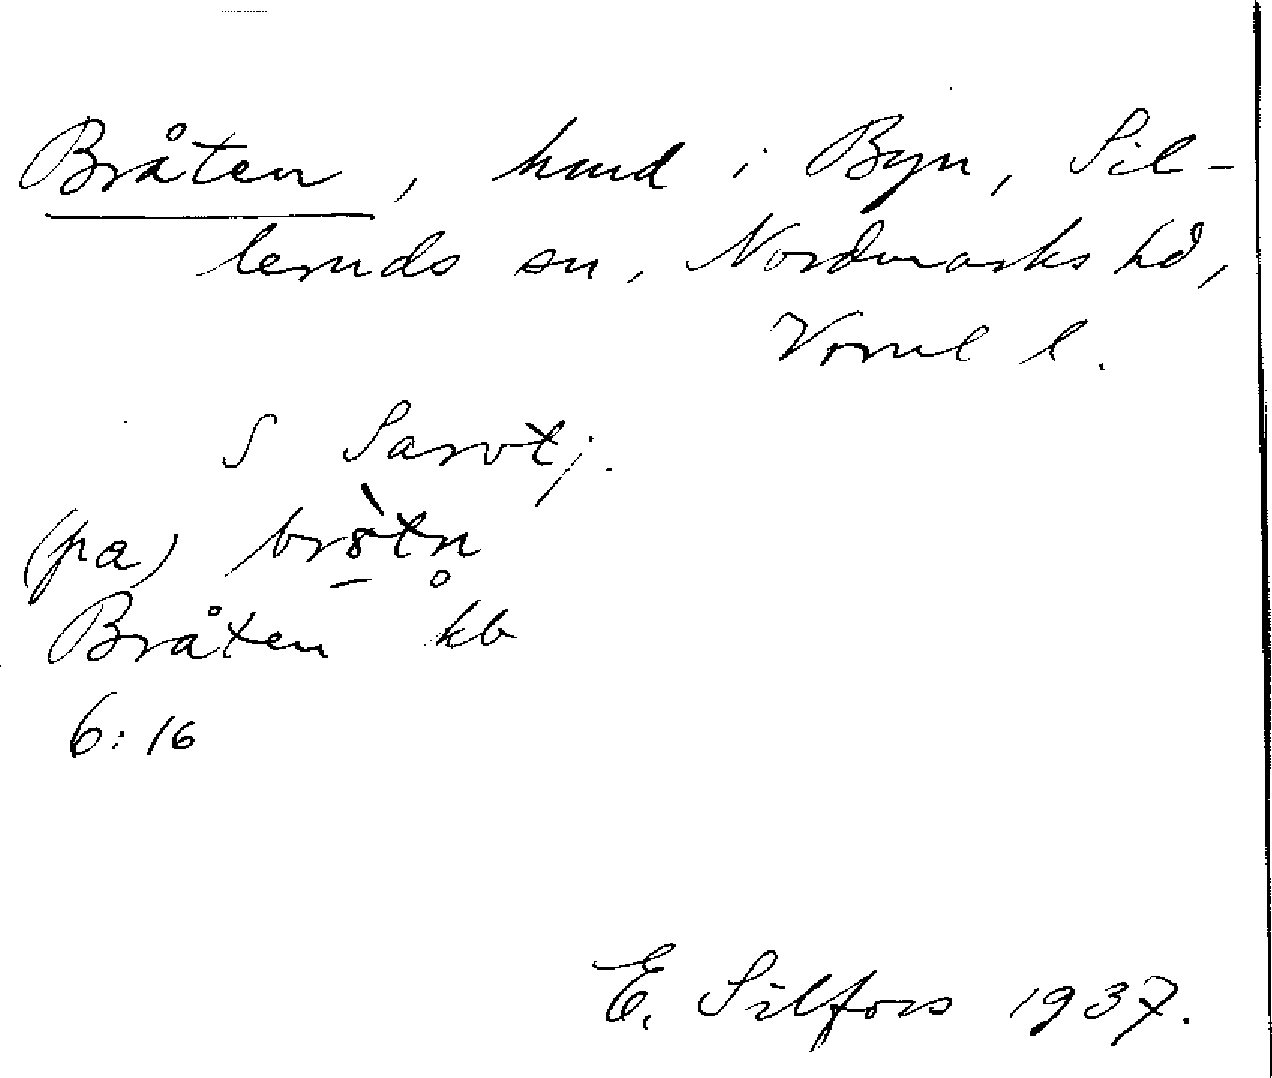 Bråten, hmd i Byn, Sil-
leruds sn, Nordmarks hd,
Vrml l.
S Sarvtj.
(pa) brötn
Bråten kb
6:16
E. Silfors 1937.